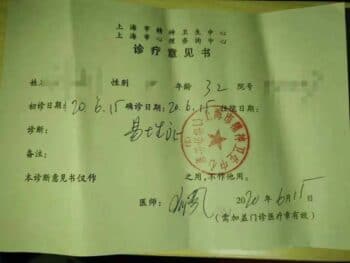 上海市精神卫生中心
上海市心理咨询中心
诊疗意见书
姓 性别 年龄 32 院号
初诊日期:20.6.15 确诊日期:20.6.15 住院日期:
诊断:
备注:
本诊断意见书仅作 之用,不作他用。
医师: 2020年6月15日
(需加盖门诊医疗章有效)